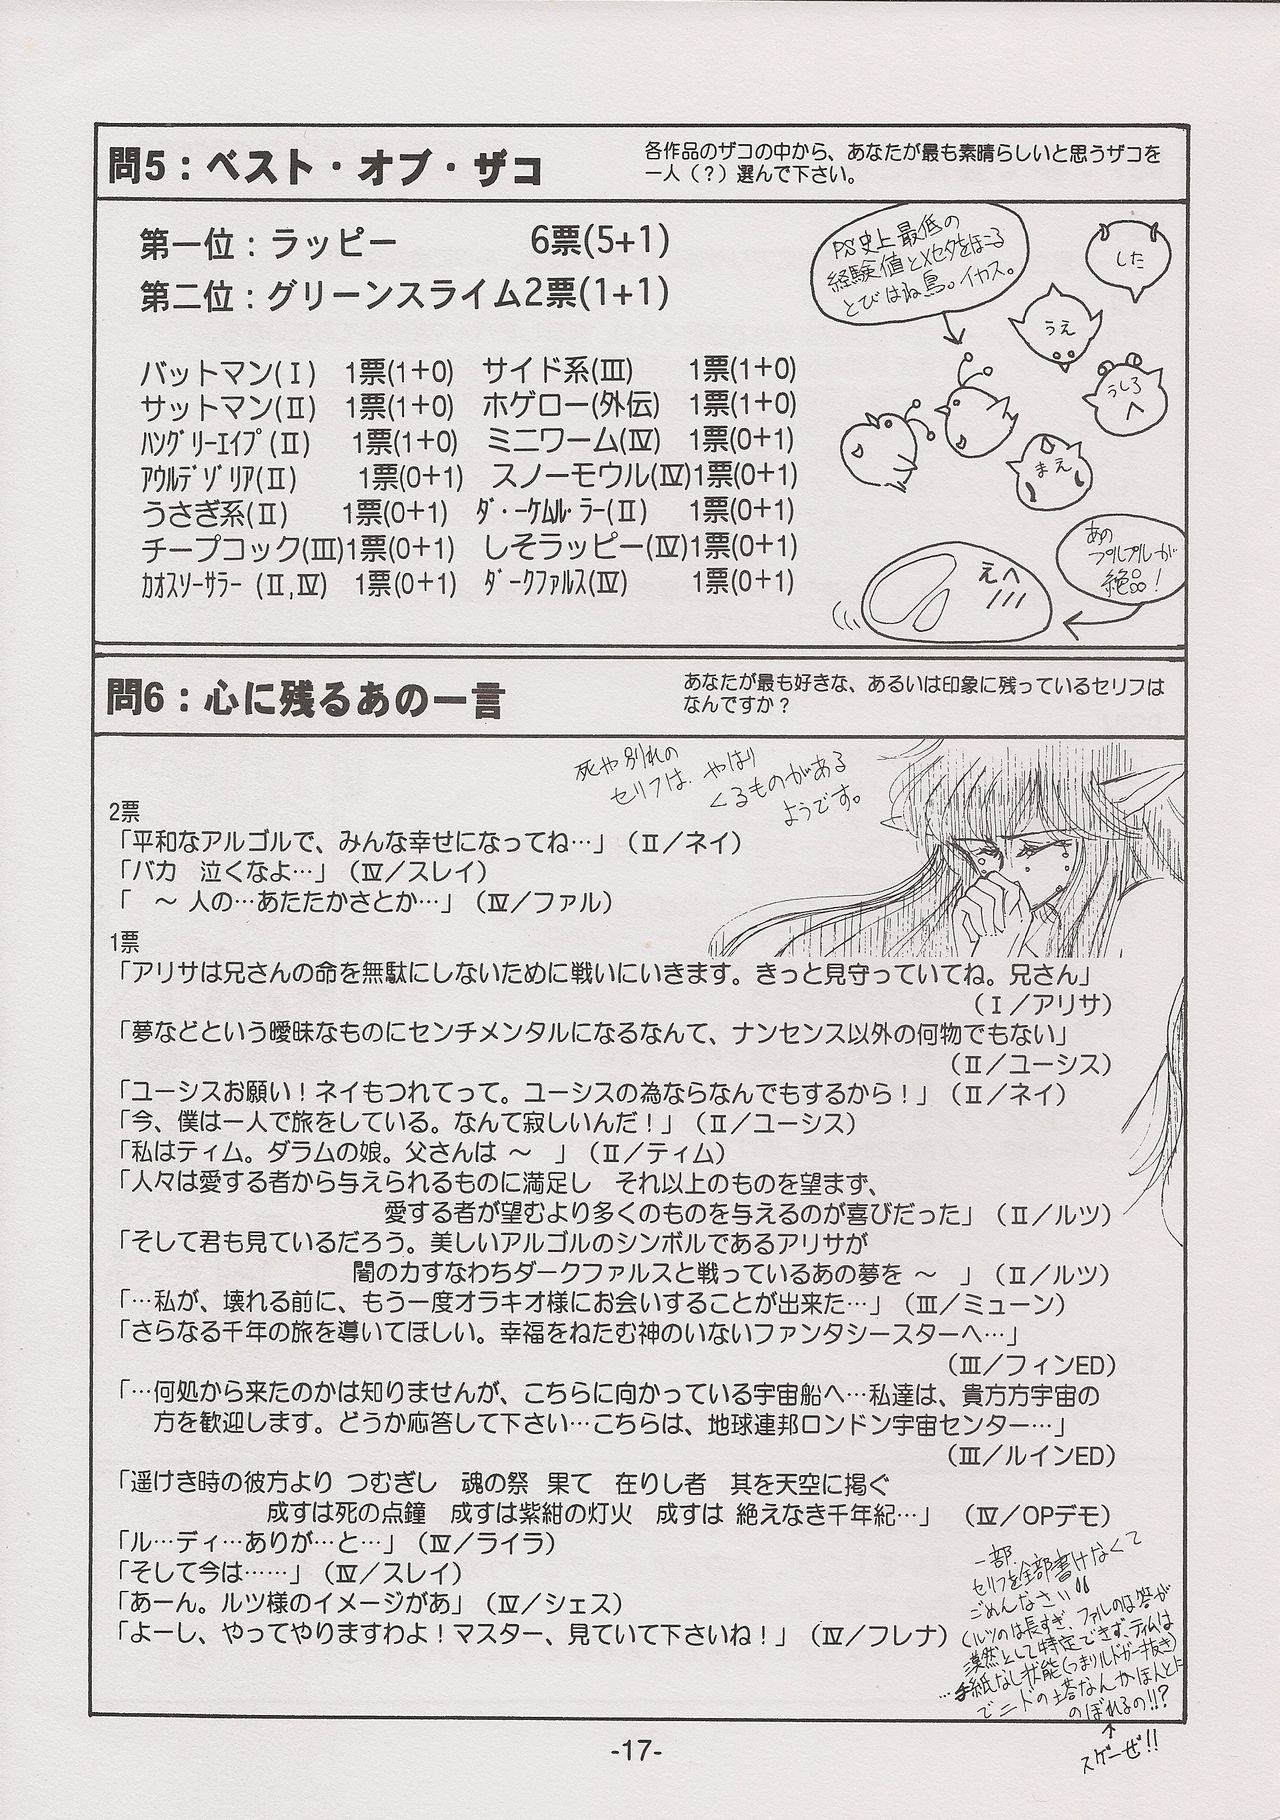 問5：ベスト・オブ・ザコ
各作品のザコの中から、あなたが最も素晴らしいと思うザコを
一人（？）選んで下さい。
第一位：ラッピー 6票(5+1)
第二位：グリーンスライム2票(1+1)
バットマン(Ⅰ) 1票(1+0) サイド系(Ⅲ) 1票(1+0)
サットマン(Ⅱ) 1票(1+0) ホゲロー(外伝) 1票(1+0)
ﾊﾝｸﾞﾘｰｴｲﾌﾟ(Ⅱ) 1票(1+0) ミニワーム(Ⅳ) 1票(0+1)
ｱｳﾙﾃﾞｿﾞﾘｱ(Ⅱ) 1票(0+1) スノーモウル(Ⅳ)1票(0+1)
うさぎ系(Ⅱ) 1票(0+1) ﾀﾞ･ｰｹﾑﾙ･ﾗｰ(Ⅱ) 1票(0+1)
チープコック(Ⅲ)1票(0+1) しそラッピー(Ⅳ)1票(0+1)
ｶｵｽｿｰｻﾗｰ (Ⅱ,Ⅳ) 1票(0+1) ﾀﾞｰｸﾌｧﾙｽ(Ⅳ) 1票(0+1)
PS史上最低の
経験値とメセタをほこる
とびはね鳥。イカス。
した
うえ
うしろ
へ
まえ
あの
プルプルが
絶品！
えへ
問6：心に残るあの一言
あなたが最も好きな、あるいは印象に残っているセリフは
なんですか？
死や別れの
セリフは、やはり
くるものがある
ようです。
2票
「平和なアルゴルで、みんな幸せになってね…」（Ⅱ／ネイ）
「バカ　泣くなよ…」（Ⅳ／スレイ）
「　～ 人の…あたたかさとか…」（Ⅳ／ファル）
1票
「アリサは兄さんの命を無駄にしないために戦いにいきます。きっと見守っていてね。兄さん」
（Ⅰ／アリサ）
「夢などという曖昧なものにセンチメンタルになるなんて、ナンセンス以外の何物でもない」
（Ⅱ／ユーシス）
「ユーシスお願い！ネイもつれてって。ユーシスの為ならなんでもするから！」（Ⅱ／ネイ）
「今、僕は一人で旅をしている。なんて寂しいんだ！」（Ⅱ／ユーシス）
「私はティム。ダラムの娘。父さんは ～　」（Ⅱ／ティム）
「人々は愛する者から与えられるものに満足し　それ以上のものを望まず、
愛する者が望むより多くのものを与えるのが喜びだった」（Ⅱ／ルツ）
「そして君も見ているだろう。美しいアルゴルのシンボルであるアリサが
闇の力すなわちダークファルスと戦っているあの夢を ～　」（Ⅱ／ルツ）
「…私が、壊れる前に、もう一度オラキオ様にお会いすることが出来た…」（Ⅲ／ミューン）
「さらなる千年の旅を導いてほしい。幸福をねたむ神のいないファンタシースターへ…」
（Ⅲ／フィンED）
「…何処から来たのかは知りませんが、こちらに向かっている宇宙船へ…私達は、貴方方宇宙の
方を歓迎します。どうか応答して下さい…こちらは、地球連邦ロンドン宇宙センター…」
（Ⅲ／ルインED）
「遥けき時の彼方より つむぎし　魂の祭　果て　在りし者　其を天空に掲ぐ
成すは死の点鐘　成すは紫紺の灯火　成すは 絶えなき千年紀…」（Ⅳ／OPデモ）
「ル…ディ…ありが…と…」（Ⅳ／ライラ）
「そして今は……」（Ⅳ／スレイ）
「あーん。ルツ様のイメージがあ」（Ⅳ／シェス）
「よーし、やってやりますわよ！マスター、見ていて下さいね！」（Ⅳ／フレナ）
一部、
セリフを全部書けなくて
ごめんなさい!!
（ルツのは長すぎ、ファルのは答が
漠然として特定できず、ティムは
…手紙なし状態（つまりルドガー抜き）
でニドの塔なんかほんとに
のぼれるの!!?
スゲーぜ!!
-17-